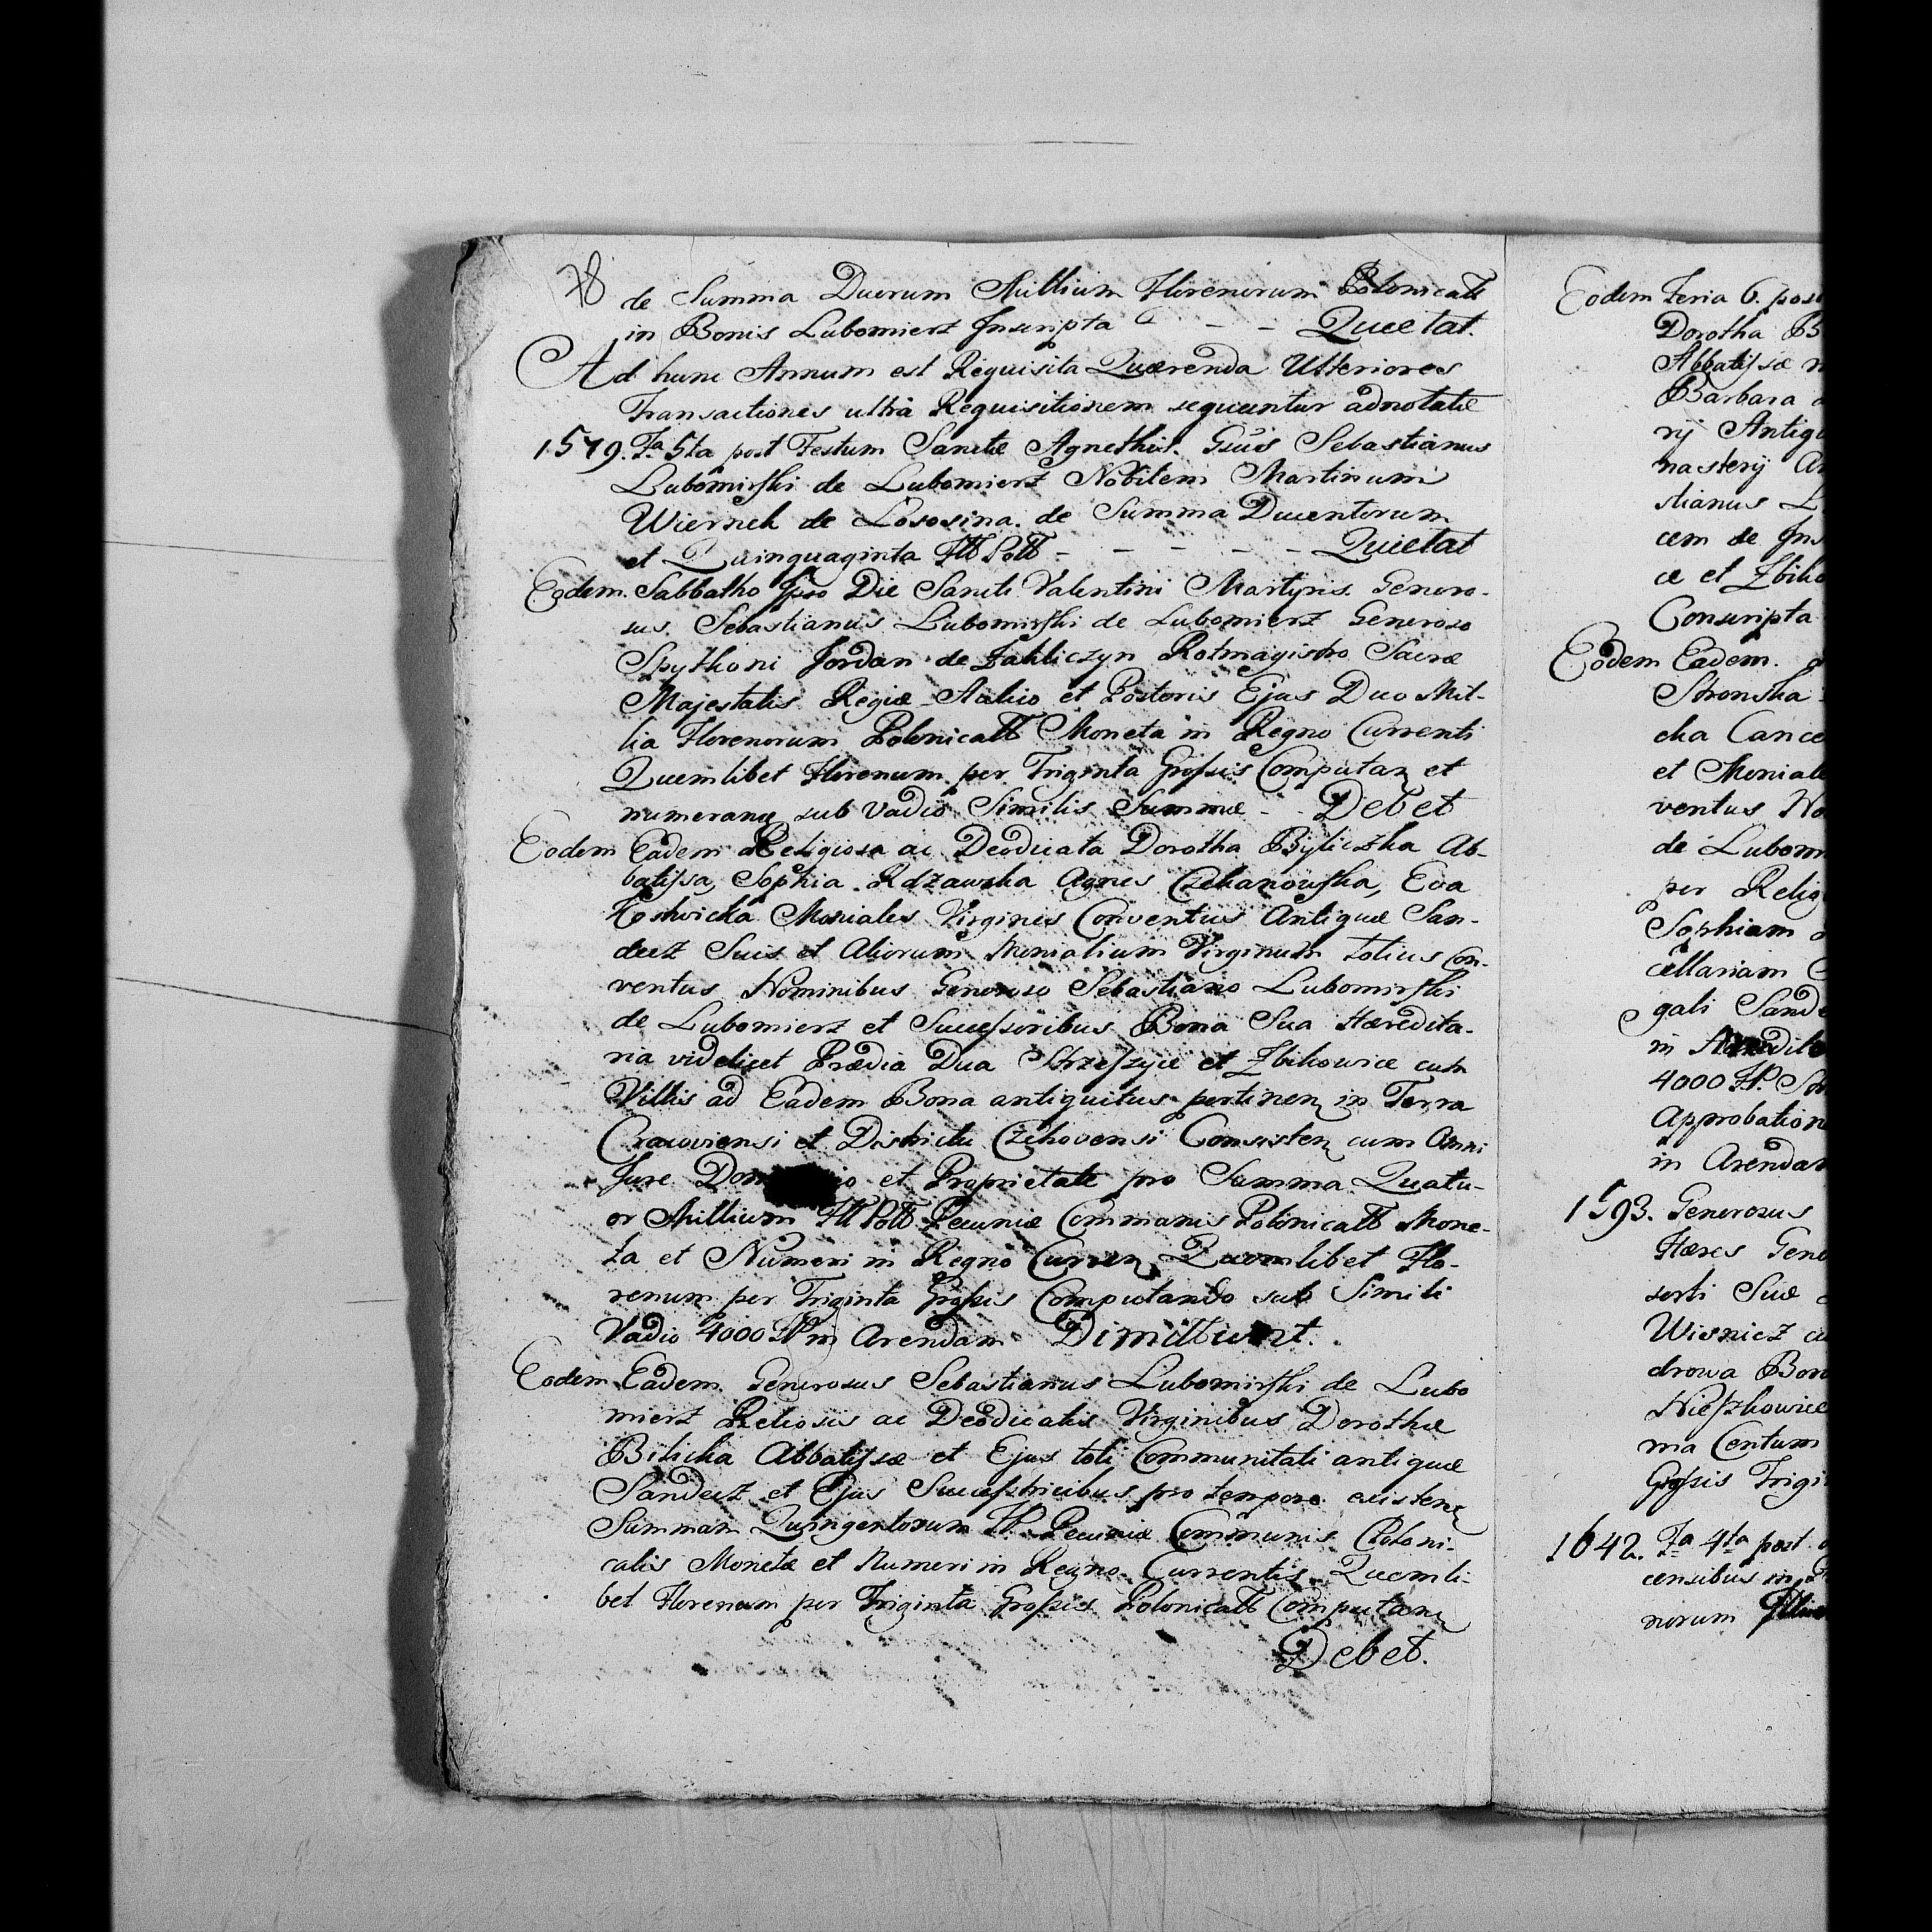 78
de Summa Duorum Millium Florenorum Polonicalt
in Bonis Lubomierz Inscripta - - Quietat.
Ad hunc Annum est Requisita Quærenda Ulteriores
Transactiones ultra Requisitionem sequuntur adnotatæ
1579. Fa 5ta post Festum Sanctæ Agnethis. Gsus Sebastianus
Lubomirski de Lubomierz Nobilem Martinum
Wiernek de Lososina. de Summa Ducentorum
et Quinquaginta Fll Poll - - - - - Quietat
Eodem. Sabbatho Ipso Die Sancti Valentini Martyris Genero-
sus Sebastianus Lubomirski de Lubomierz Generoso
Spythoni Jordan de Zakliczyn Rotmagistro Sacræ
Majestatis Regiæ et Posteris Ejus Duo Mil-
lia Florenorum Polonicalt Moneta in Regno Currenti
Quemlibet Florenum per Triginta Grossis Computan et
numeran sub Vadio Similis Summæ - - Debet
Eodem Eadem Religiosa ac Deodicata Dorotha Byliczka Ab-
batissa, Sophia Rdzawska Agnes Czekanowska, Eva
Moniales Virgines Conventus Antiquæ San-
decz Suis et Aliorum Monialium Virginum totius Con-
ventus Nominibus Generoso Sebastiano Lubomirski
de Lubomierz et Successoribus Bona Sua Hæredita-
ria videlicet Prædia Dua Strzeszyce et Zbikowice cum
Villis ad Eadem Bona antiquitus pertinen in Terra
Cracoviensi et Districtu Czchovensi Consisten cum Omni
Jure et Proprietate pro Summa Quatu-
or Millium Fll Poll Pecuniæ Communis Polonicalt Mone-
ta et Numeri in Regno Curren Quemlibet Flo-
renum per Triginta Grossis Computando sub Simili
Vadio 4000 FP in Arendam Dimittunt.
Eodem Eadem. Generosus Sebastianus Lubomirski de Lubo
mierz Reliosis ac Deodicatis Virginibus Dorothæ
Bilicka Abbatissæ et Ejus toti Communitati antiquæ
Sandecz et Ejus Successtricibus pro tempore existen
Summam Quingentorum FP. Pecuniæ Communis Poloni-
calis Monetæ et Numeri in Regno Currentis Quemli-
bet Florenum per Triginta Grossis Polonicalt Computan
Debet.
Eodem Feria 6. post
Dorotha B
Abbatissæ
Barbara
rij Antiqu
nasterij
stianus L
cem de
æ et Zbiko
Conscripta
Eodem Eadem.
Stronska
cka Cance
et Moniale
ventus No
de Lubom
per Relig
Sophiam
cellariam
gali Sande
in
4000 FP.
Approbation
in Arendam
1593. Generosus
Hæres Gene
sorti Suæ
Wisnicz
drowa Bon
Nieszkowice
ma Centum
Grossis Trigi
1642. Fa 4ta post
censibus in
norum